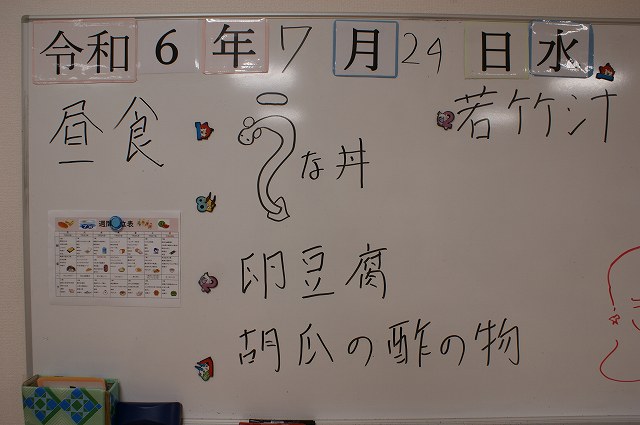 令和6年7月24日水
昼食
うな丼
若竹汁
卵豆腐
胡瓜の酢の物